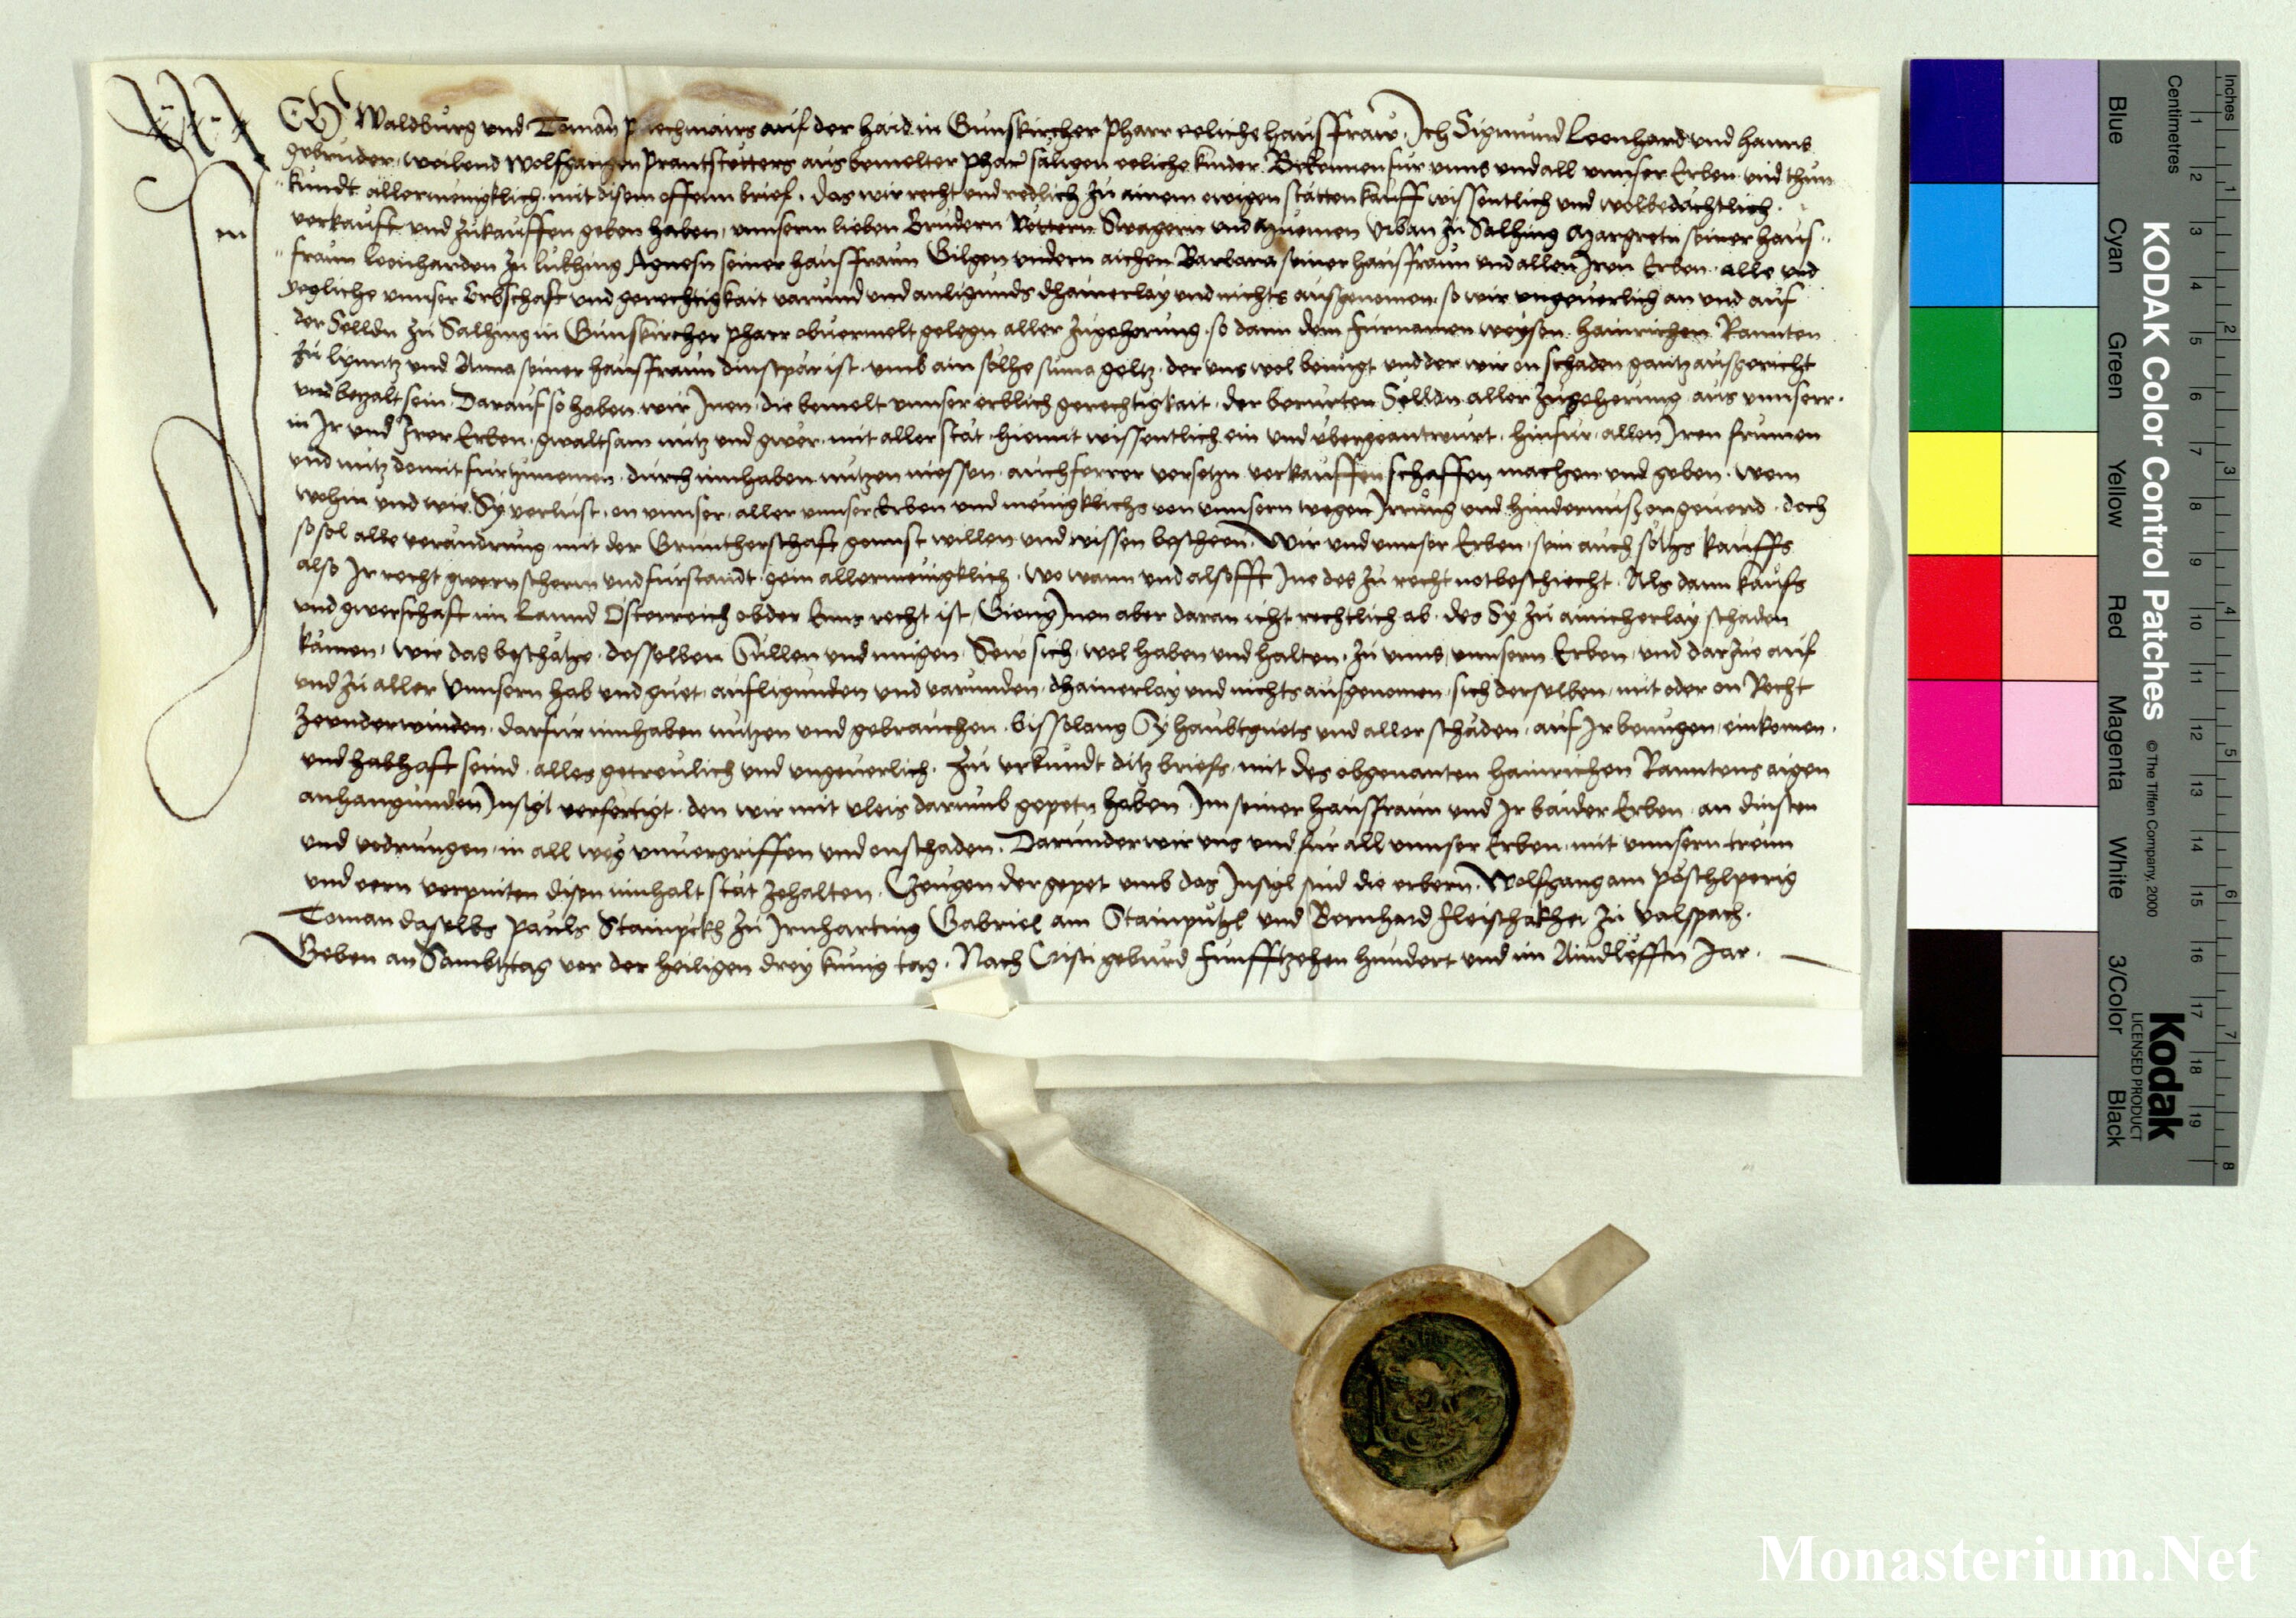 ICH Waldburg und Toman P echmairs auf der haid in Gunskircher Pharr eeliche hausffraw. Ich Sigmund Leonhard und hanns
gebruder, weilend Wolfgangen Prantstetters aus bemelter Pharr säligen eeliche kinder. Bekennen fur unns und all unnser Erben und thun
kundt allermenigklich mit disem offenn brief, das wir recht und redlich zu ainem ewigen stätten kauff wissentlich und wolbedächtlich
verkaufft und zukauffen geben haben, unnserm lieben Brudern Vettern Swagern und Muemen Urban zu Salhing Margretn seiner haus
fraun Leonharden zu Lukhing Agnesn seiner hausffraun Gilgen undern aichen Barbara seiner hausffraun und allen Iren Erben, alle und
yegliche unnser Erbschaft und gerechtigkait varund und anligunds dhainerlay und nichts ausgenomen, so wir ungeverlich an und auf
der Selldn zu Salhing in Gunskircher pharr obvermelt gelegn aller zugehorung, so dann dem furnamen weysen hainrichen Rannten
zu Lynntz und Anna seiner hausffraun dinstpar ist, umb ain solhe suma geltz, der uns wol benugt und der wir on schaden gantz ausgericht
und bezalt sein. Darauf so haben wir Inen, die bemelt unnser erblich gerechtigkait, der berurten Selldn aller zugehorung aus unnserr
in Ir und Irer Erben, gwaltsam nutz und gwer, mit aller stät, hiemit wissentlich ein und ubergeantwurt, hinfur allen Iren frumen
und nutz domit furtzunemen, durch innhaben nutzen niessen, auch ferrer versetzn verkauffen schaffen machen und geben, wem
wohin und wie Sy verlust, on unnser, aller unnser Erben und menigklichs von unnsern wegen Irrung und hindernusz ongeverd, doch
so sol alle verändrung, mit der Gruntherschaft gunst willen und wissen bescheen. Wir und unnser Erben, sein auch solhs kauffs
also Ir recht gwern scherm und furstandt, gein allermenigklich, wo wann und alsofft Ine des zu recht not beschiecht. Als dann kaufs
und gwerschaft im Lannd Österreich ob der Enns recht ist, Gieng Inen aber daran icht rechtlich ab, des Sy zu ainicherlay schaden
kämen, wie das beschähe, desselben Sullen und mügen Sew sich, wol haben und halten, zu unns, unnsern Erben, und darzue auf
und zu aller Unnsern hab und guet, aufligunden und varunden, dhainerlay und nichts ausgenomen, sich derselben, mit oder on Recht
zeunderwinden, darfur innhaben nutzen und gebrauchen, bissolang Sy haubtguets und aller schäden, auf Ir benugen, einkomen,
und habhaft seind, alles getreulich und ungeverlich. Zu urkundt ditz briefs, mit des obgenanten hainrichen Ranntens aigen
anhangunden Insigl verfertigt, den wir mit vleis darumb gepetn haben, Im seiner hausfraun und Ir baider Erben, an dinsten
und vodrungen, in all weg unvergriffen und onschaden. Darunder wir uns und fur all unnser Erben, mit unnsern treun
und eern verpinten disen innhalt stät zehalten. Zeugen der gepet umb das Insigl sind die erbern. Wolfgang am Pöschlperig
Toman daselbs Pauls Stainpekh zu Irnharting Gabriel am Stainpühel und Bernhard Fleischakher zu Valspach.
Geben an Sambtztag vor der heiligen drey kunig tag. Nach Cristi geburd Funfftzehen hundert und im Aindlefftn Jar.
KODAK Color Control Patches © The Tiffen Company, 2000
Kodak
LICENSED PRODUCT
Blue Cyan Green Yellow Red Magenta White 3/Color Black
Centimetres 1 2 3 4 5 6 7 8 9 10 11 12 13 14 15 16 17 18 19
Inches 1 2 3 4 5 6 7 8
Monasterium.Net